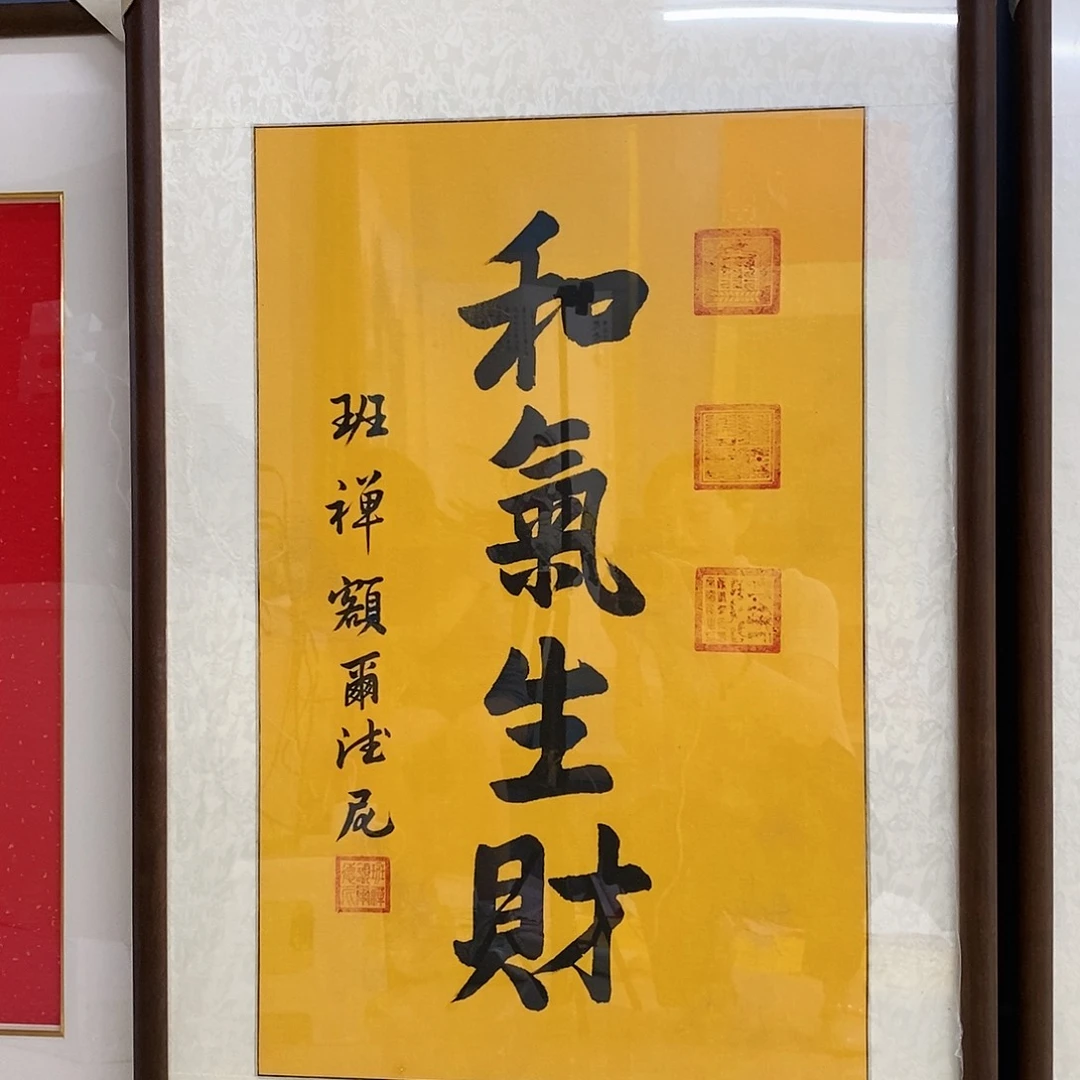 和氣生財
班禅額爾法尼